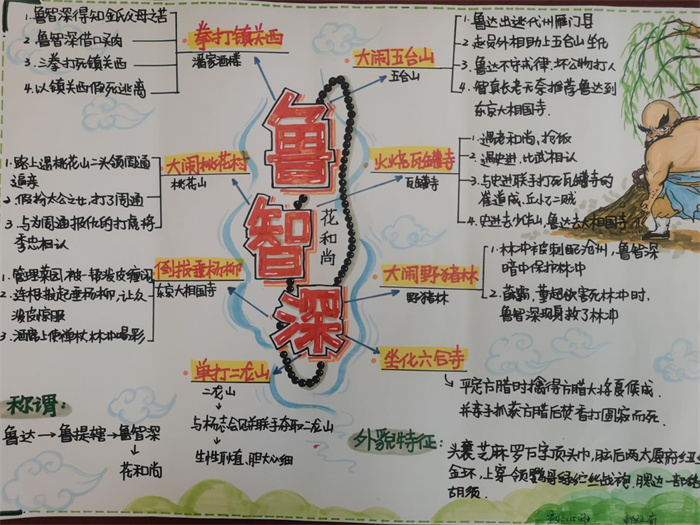 鲁智深
花和尚
拳打镇关西
潘家酒楼
1.鲁智深得知金氏父母之苦
2.鲁智深借口买肉
3.三拳打死镇关西
4.以镇关西假死逃离
大闹桃花村
桃花山
1.路上遇桃花山二头领周通
逼亲
2.假扮太公之女,打了周通
3.与为周通报仇的打虎将
李忠相认
倒拔垂杨柳
东京大相国寺
1.管理菜园,被一帮泼皮
2.连根拔起垂杨柳,让众
泼皮
3.酒席上使禅杖林冲喝彩
单打二龙山
二龙山
与杨志会见并联手夺取二龙山
生性耿直,胆大心细
大闹五台山
五台山
1.鲁达出逃代州雁门县
2.赵员外相助上五台山坐化
3.鲁达不守戒律,坏公物打人
4.智真长老无奈推荐鲁达到
东京大相国寺.
火烧瓦罐寺
瓦罐寺
1.遇老和尚,抢饭
2.遇史进,比武相认
3.与史进联手打死瓦罐寺的
崔道成,丘小乙贼
4.史进去少华山,鲁达去大相国寺
大闹野猪林
野猪林
1.林冲被刺配沧州,鲁智深
暗中保护林冲
2.薛霸,董超欲害死林冲时,
鲁智深现身救了林冲
坐化六合寺
平定方腊时擒得方腊大将夏侯成,
并亲手抓获方腊后焚香打圆寂而死.
称谓:
鲁达→鲁提辖→鲁智深
花和尚
外貌特征:
头裹芝麻罗万字顶头巾,脑后两太原府纽丝
金环,上穿领鹦哥绿纻丝战袍,腮边一部络
胡须.